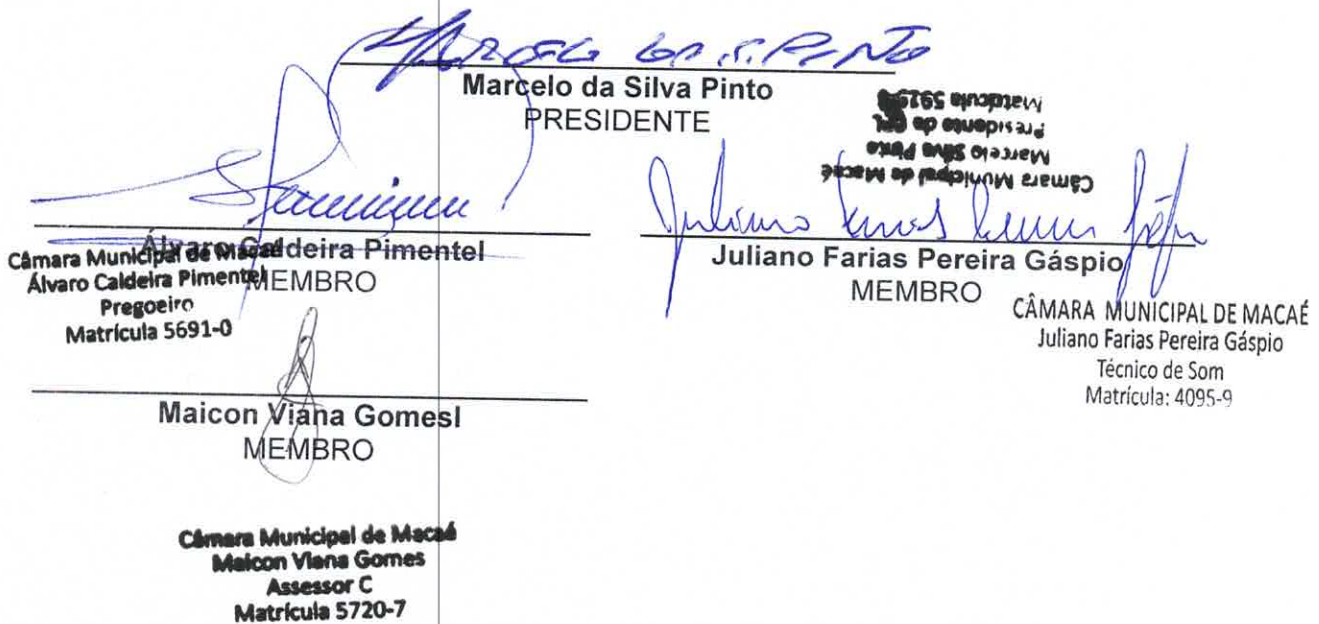 Marcelo da Silva Pinto
PRESIDENTE
Câmara Municipal de Macaé
Marcelo Silva Pinto
Presidente da
Matrícula
Álvaro Caldeira Pimentel
MEMBRO
Câmara Municipal de Macaé
Álvaro Caldeira Pimentel
Pregoeiro
Matrícula 5691-0
Juliano Farias Pereira Gáspio
MEMBRO
CÂMARA MUNICIPAL DE MACAÉ
Juliano Farias Pereira Gáspio
Técnico de Som
Matrícula: 4095-9
Maicon Viana Gomesl
MEMBRO
Câmara Municipal de Macaé
Maicon Viana Gomes
Assessor C
Matrícula 5720-7